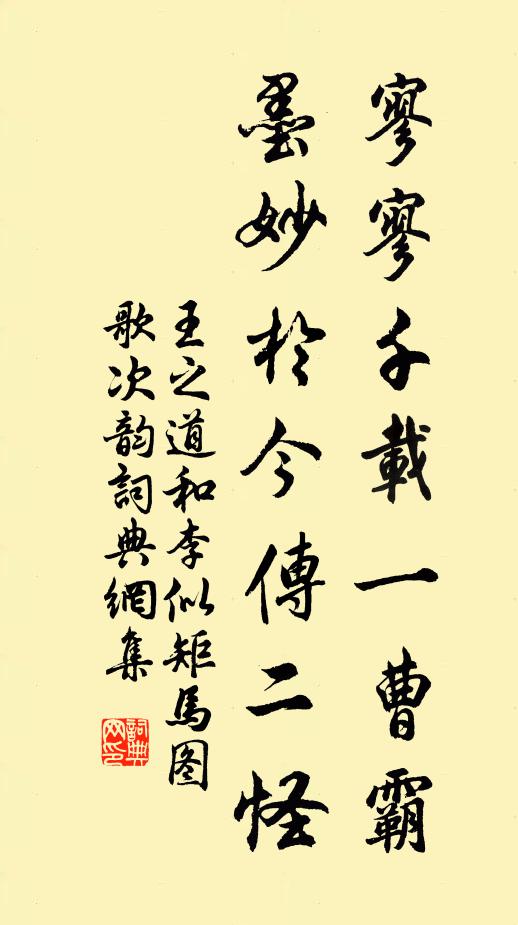 寥寥千載一曹霸
墨妙於今傳二怪
王之道和李似矩馬图
歌次韵詞典網集
詞典網印